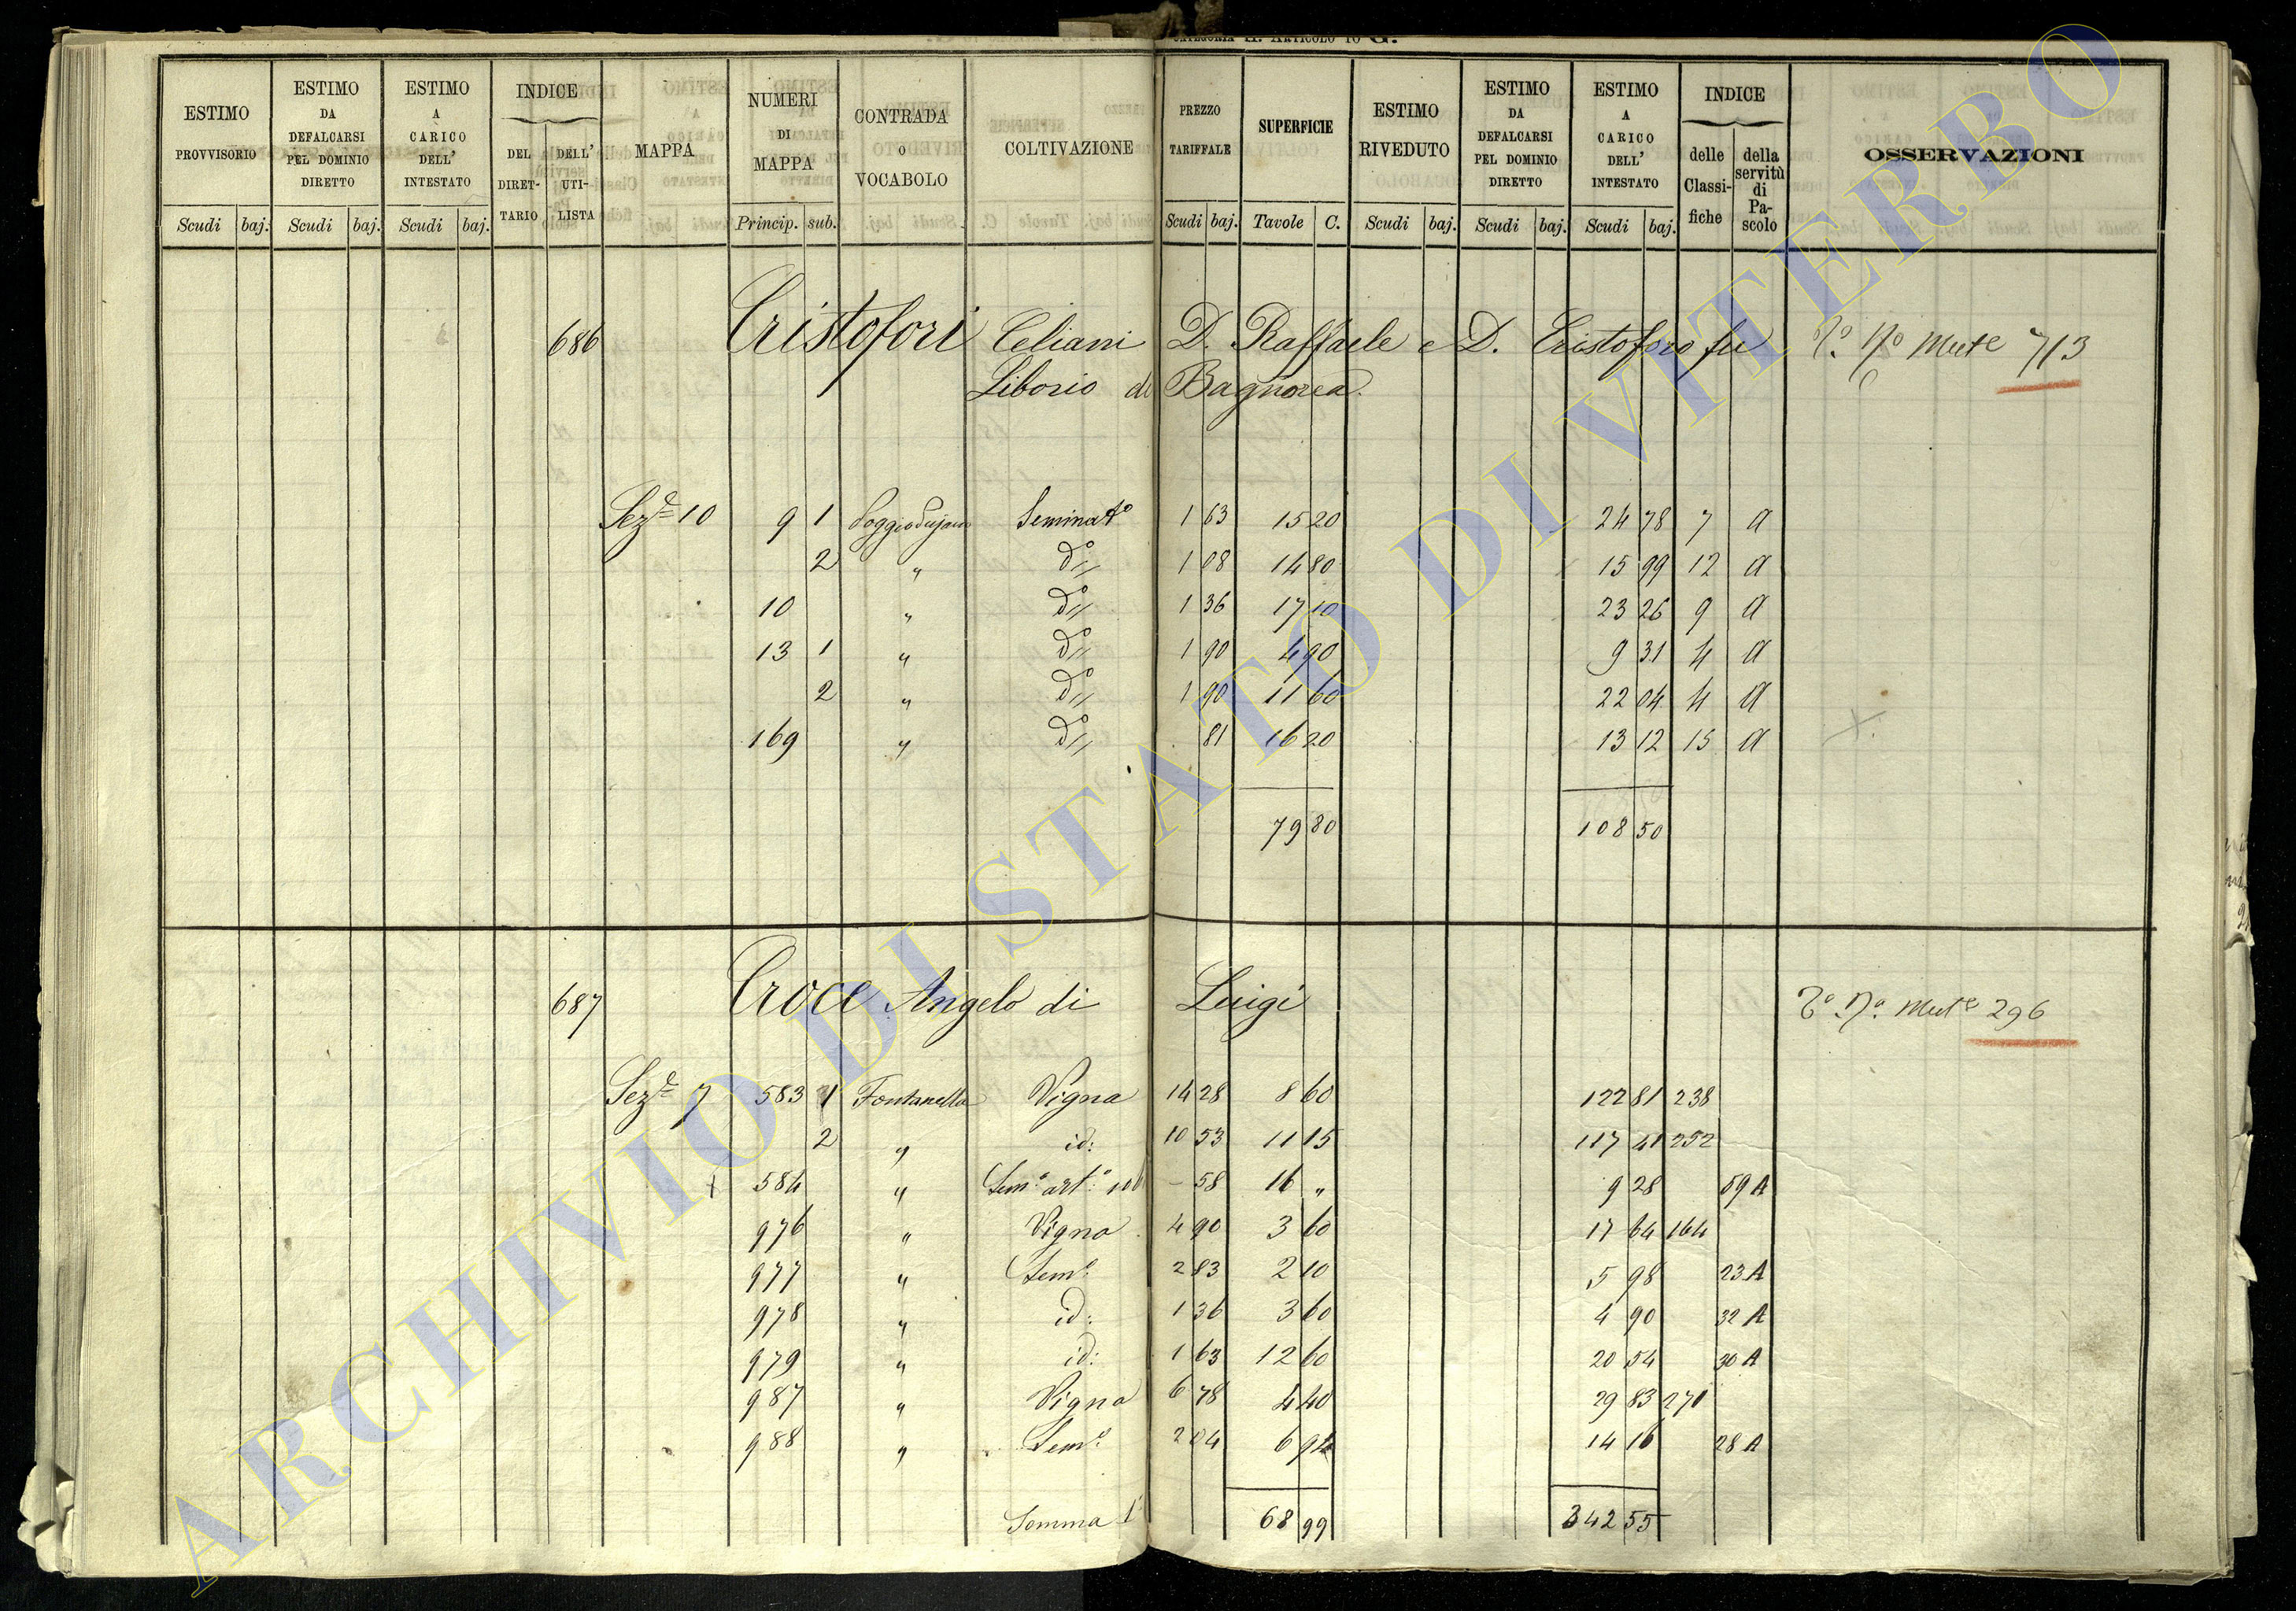 CATEGORIA II. ARTICOLO 10 G.
ESTIMO PROVVISORIO | ESTIMO DA DEFALCARSI PEL DOMINIO DIRETTO | ESTIMO A CARICO DELL' INTESTATO | INDICE DEL DIRETTARIO | DELL' UTILISTA | MAPPA | NUMERI DI MAPPA | CONTRADA O VOCABOLO | COLTIVAZIONE | PREZZO TARIFFALE | SUPERFICIE | ESTIMO RIVEDUTO | ESTIMO DA DEFALCARSI PEL DOMINIO DIRETTO | ESTIMO A CARICO DELL' INTESTATO | INDICE delle Classifiche | della servitù di Pascolo | OSSERVAZIONI
Scudi baj. Scudi baj. Scudi baj. Princip. sub. Scudi baj. Tavole C. Scudi baj. Scudi baj. Scudi baj.
686 Cristofori Celiani D. Raffaele e D. Cristoforo fu Mute 713
Liborio di Bagnorea.
Sez.e 10 9 1 Seminat.o 1 63 15 20 24 78 7 A
2 " d.o 1 08 14 80 15 99 12 A
10 " d.o 1 36 17 10 23 26 9 A
13 1 " d.o 1 90 4 90 9 31 4 A
2 " d.o 1 90 11 60 22 04 4 A
169 " d.o 81 16 20 13 12 15 A
79 80 108 50
687 Croce Angelo di Luigi Mute 296
Sez.e 7 583 1 Fontanella Vigna 14 28 8 60 122 81 238
2 " id: 10 53 11 15 117 41 252
+ 584 " Sem.o art.o - 58 16 " 9 28 59 A
976 " Vigna 4 90 3 60 17 64 164
977 " Sem.o 2 83 2 10 5 98 23 A
978 " id: 1 36 3 60 4 90 32 A
979 " id: 1 63 12 60 20 54 30 A
987 " Vigna 6 78 4 40 29 83 270
988 " Sem.o 2 04 6 94 14 16 28 A
Somma 68 99 342 55
ARCHIVIO DI STATO DI VITERBO